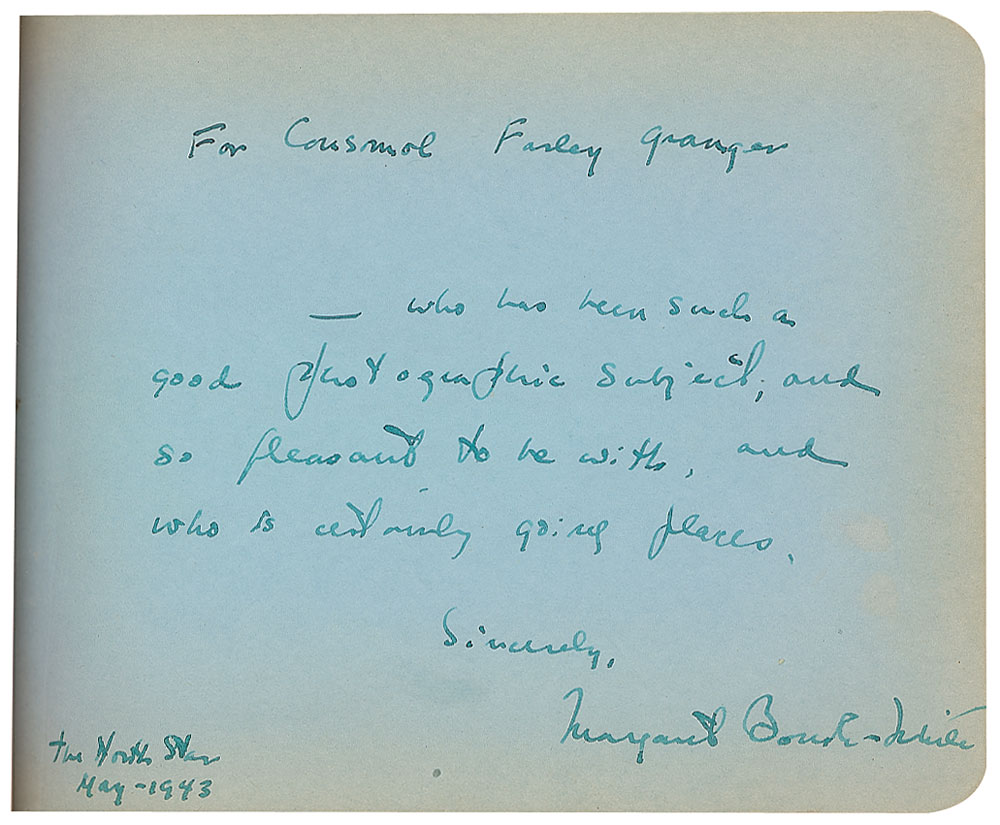 For Consmol Farley Granger
— who has been such a
good photographic subject, and
so pleasant to be with, and
who is certainly going places.
Sincerely,
Margaret Bourke-White
The North Star
May-1943